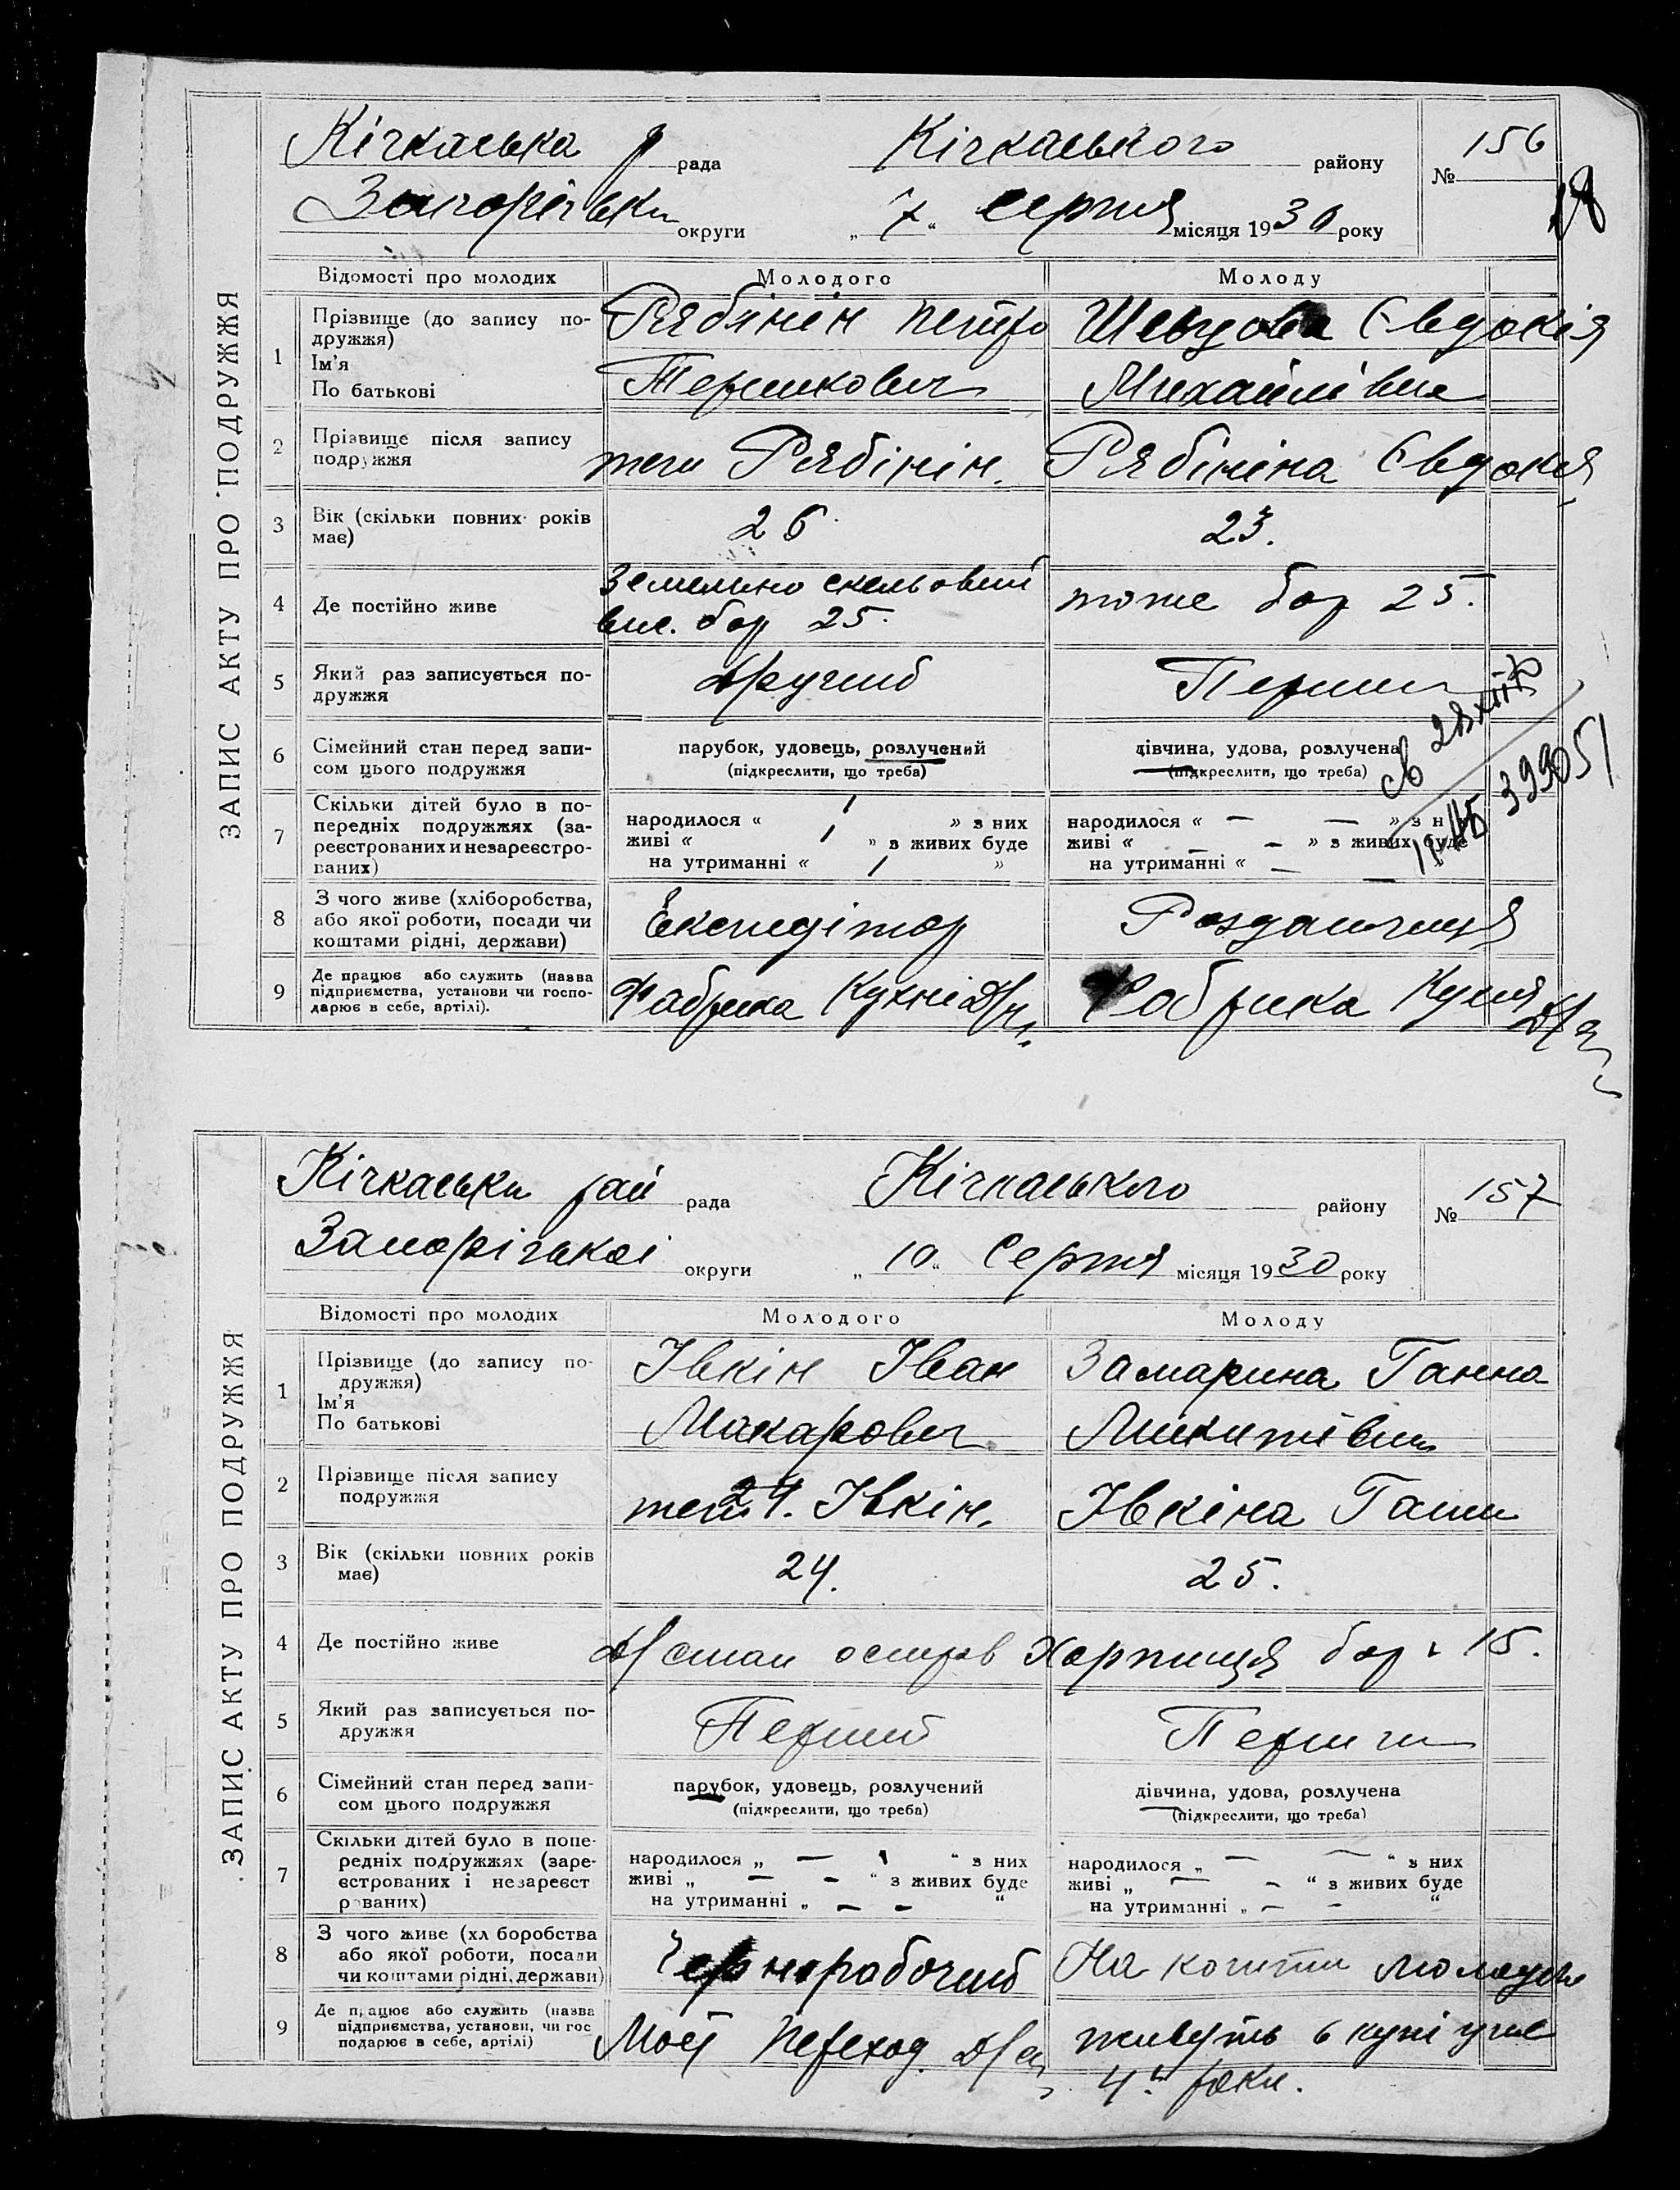 ЗАПИС АКТУ ПРО ПОДРУЖЖЯ
Кічкаська р рада Кічкаського району № 156
Запорізьки округи „7“ серпня місяця 1930 року
18
Відомості про молодих Молодого Молоду
1 Прізвище (до запису по-
дружжя)
Ім'я
По батькові
Рябінін Петро
Терешкович
Шевцова Євдокія
Михайлівна
2 Прізвище після запису
подружжя
теж Рябінін.
Рябініна Євдокія
3 Вік (скільки повних років
має)
26
23.
4 Де постійно живе
Земельно скельовий
вис. бар 25.
тоже бар 25.
5 Який раз записується по-
дружжя
Другий
Перший
6 Сімейний стан перед запи-
сом цього подружжя
парубок, удовець, розлучений
(підкреслити, що треба)
дівчина, удова, розлучена
(підкреслити, що треба)
7 Скільки дітей було в по-
передніх подружжях (за-
реєстрованих и незареєстро-
ваних)
народилося « 1 » з них
живі « 1 » з живих буде
на утриманні « 1 »
народилося « — — » з них
живі « - - » з живих буде
на утриманні « — — »
399051
8 З чого живе (хліборобства,
або якої роботи, посади чи
коштами рідні, держави)
Експедітор
Роздатчиця
9 Де працює або служить (назва
підприємства, установи чи госпо-
дарює в себе, артілі).
Фабрика Кухні
Фабрика Кухня
ЗАПИС АКТУ ПРО ПОДРУЖЖЯ
Кічкаськи рай рада Кічкаського району № 157
Запорізькоі округи „10“ Серпня місяця 1930 року
Відомості про молодих Молодого Молоду
1 Прізвище (до запису по-
дружжя)
Ім'я
По батькові
Івкін Іван
Макарович
Замарина Ганна
Микитівна
2 Прізвище після запису
подружжя
теж Івкін.
Івкіна Ганна
3 Вік (скільки повних років
має)
24.
25.
4 Де постійно живе
острів Хортиця бар 15.
5 Який раз записується по-
дружжя
Перший
Перший
6 Сімейний стан перед запи-
сом цього подружжя
парубок, удовець, розлучений
(підкреслити, що треба)
дівчина, удова, розлучена
(підкреслити, що треба)
7 Скільки дітей було в попе-
редніх подружжях (заре-
єстрованих і незареєст
рованих)
народилося „ — “ з них
живі „ — - “ з живих буде
на утриманні „ — — “
народилося „ — — “ з них
живі „ — - “ з живих буде
на утриманні „ — - “
8 З чого живе (хл боробства
або якої роботи, посади
чи коштами рідні, держави)
Чернорабочий
На кошти молодого
9 Де працює або служить (назва
підприємства, установи, чи гос
подарює в себе, артілі)
Мост Переход.
живуть в купі уже
4 роки.